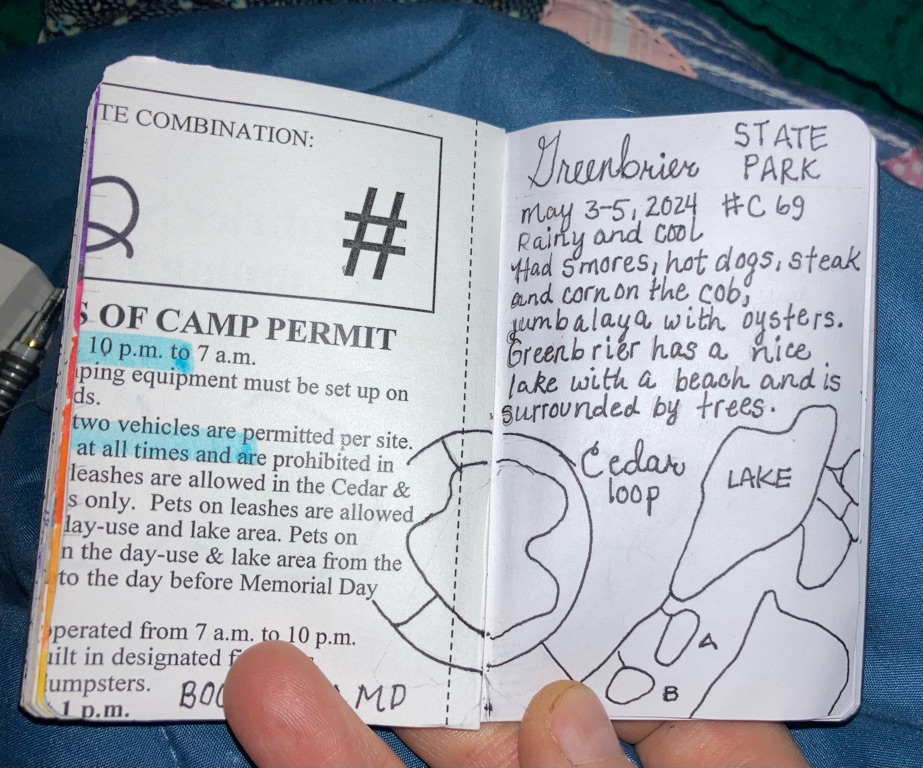 TE COMBINATION:
#
S OF CAMP PERMIT
10 p.m. to 7 a.m.
ping equipment must be set up on
ds.
two vehicles are permitted per site.
at all times and are prohibited in
leashes are allowed in the Cedar &
s only. Pets on leashes are allowed
lay-use and lake area. Pets on
n the day-use & lake area from the
to the day before Memorial Day
perated from 7 a.m. to 10 p.m.
uilt in designated f
umpsters.
1 p.m.
BOO MD
Greenbrier STATE
PARK
May 3-5, 2024 #C 69
Rainy and cool
Had smores, hot dogs, steak
and corn on the cob,
jumbalaya with oysters.
Greenbrier has a nice
lake with a beach and is
surrounded by trees.
Cedar
loop
LAKE
A
B